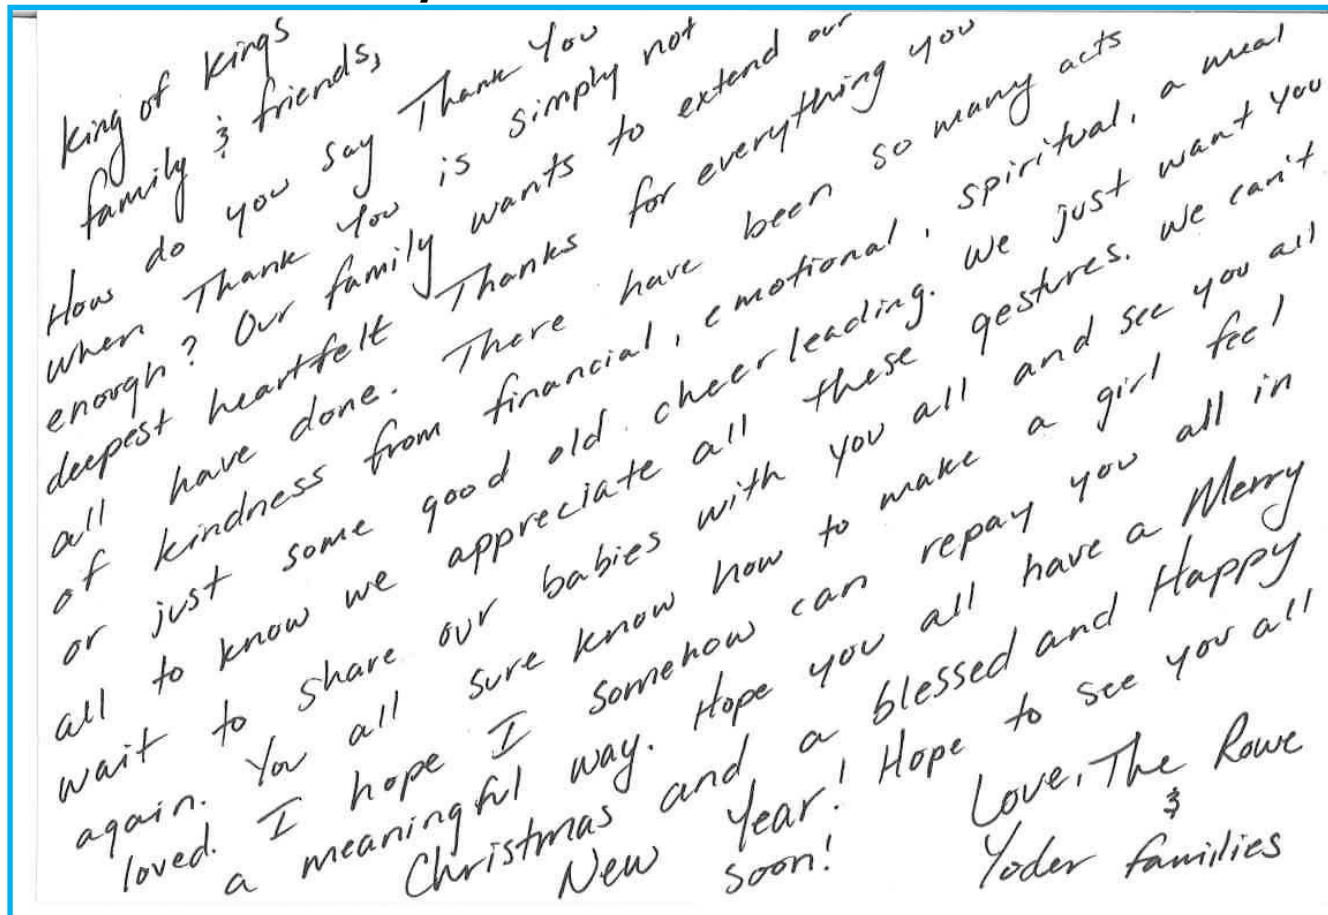 King of Kings
family & friends,
How do you say Thank You
when Thank You is simply not
enough? Our family wants to extend our
deepest heartfelt Thanks for everything you
all have done. There have been so many acts
of kindness from financial, emotional, spiritual, a meal
or just some good old cheerleading. We just want you
all to know we appreciate all these gestures. We can't
wait to share our babies with you all and see you all
again. You all sure know how to make a girl feel
loved. I hope I somehow can repay you all in
a meaningful way. Hope you all have a Merry
Christmas and a blessed and Happy
New Year! Hope to see you all
soon!
Love, The Rowe
&
Yoder families